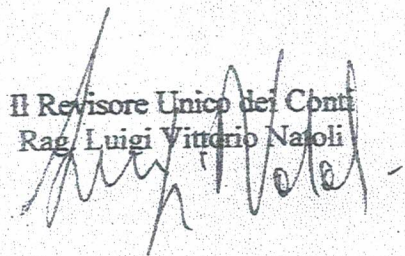 Il Revisore Unico dei Conti
Rag. Luigi Vittorio Natoli